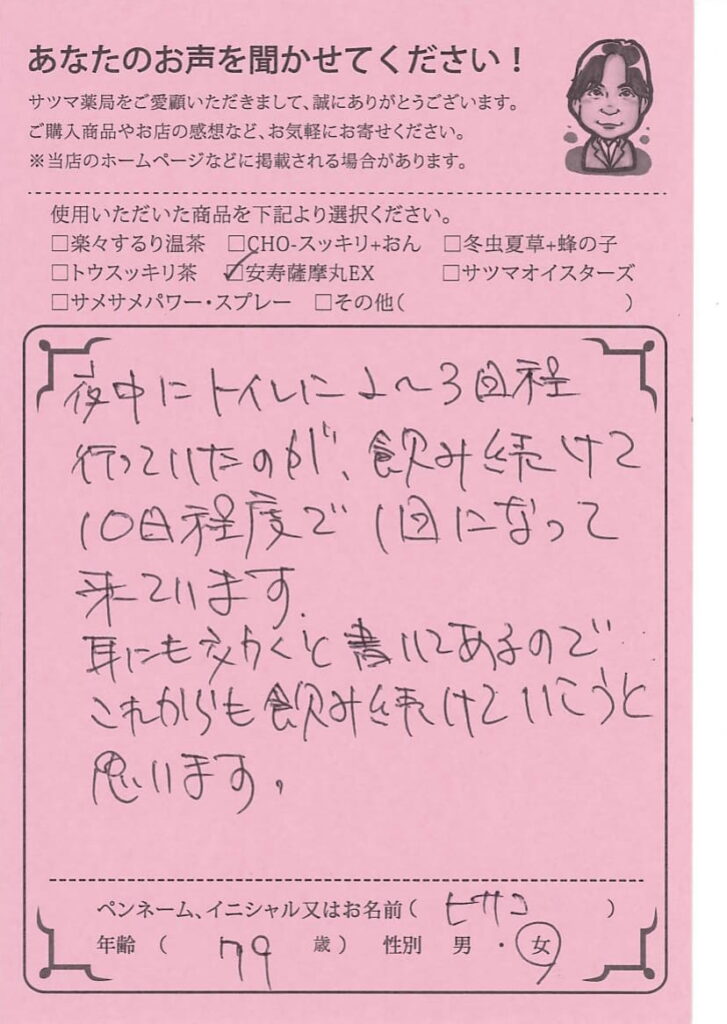 あなたのお声を聞かせてください！
サツマ薬局をご愛顧いただきまして、誠にありがとうございます。
ご購入商品やお店の感想など、お気軽にお寄せください。
※当店のホームページなどに掲載される場合があります。
使用いただいた商品を下記より選択ください。
□楽々するり温茶 □CHO-スッキリ+おん □冬虫夏草+蜂の子
□トウスッキリ茶 □安寿薩摩丸EX □サツマオイスターズ
□サメサメパワー・スプレー □その他( )
夜中にトイレに2〜3回程
行っていたのが、飲み続けて
10日程度で1回になって
来ています.
耳にも効くと書いてあるので
これからも飲み続けていこうと
思います。
ペンネーム、イニシャル又はお名前( ヒサコ )
年齢 ( 79 歳) 性別 男 ・ 女